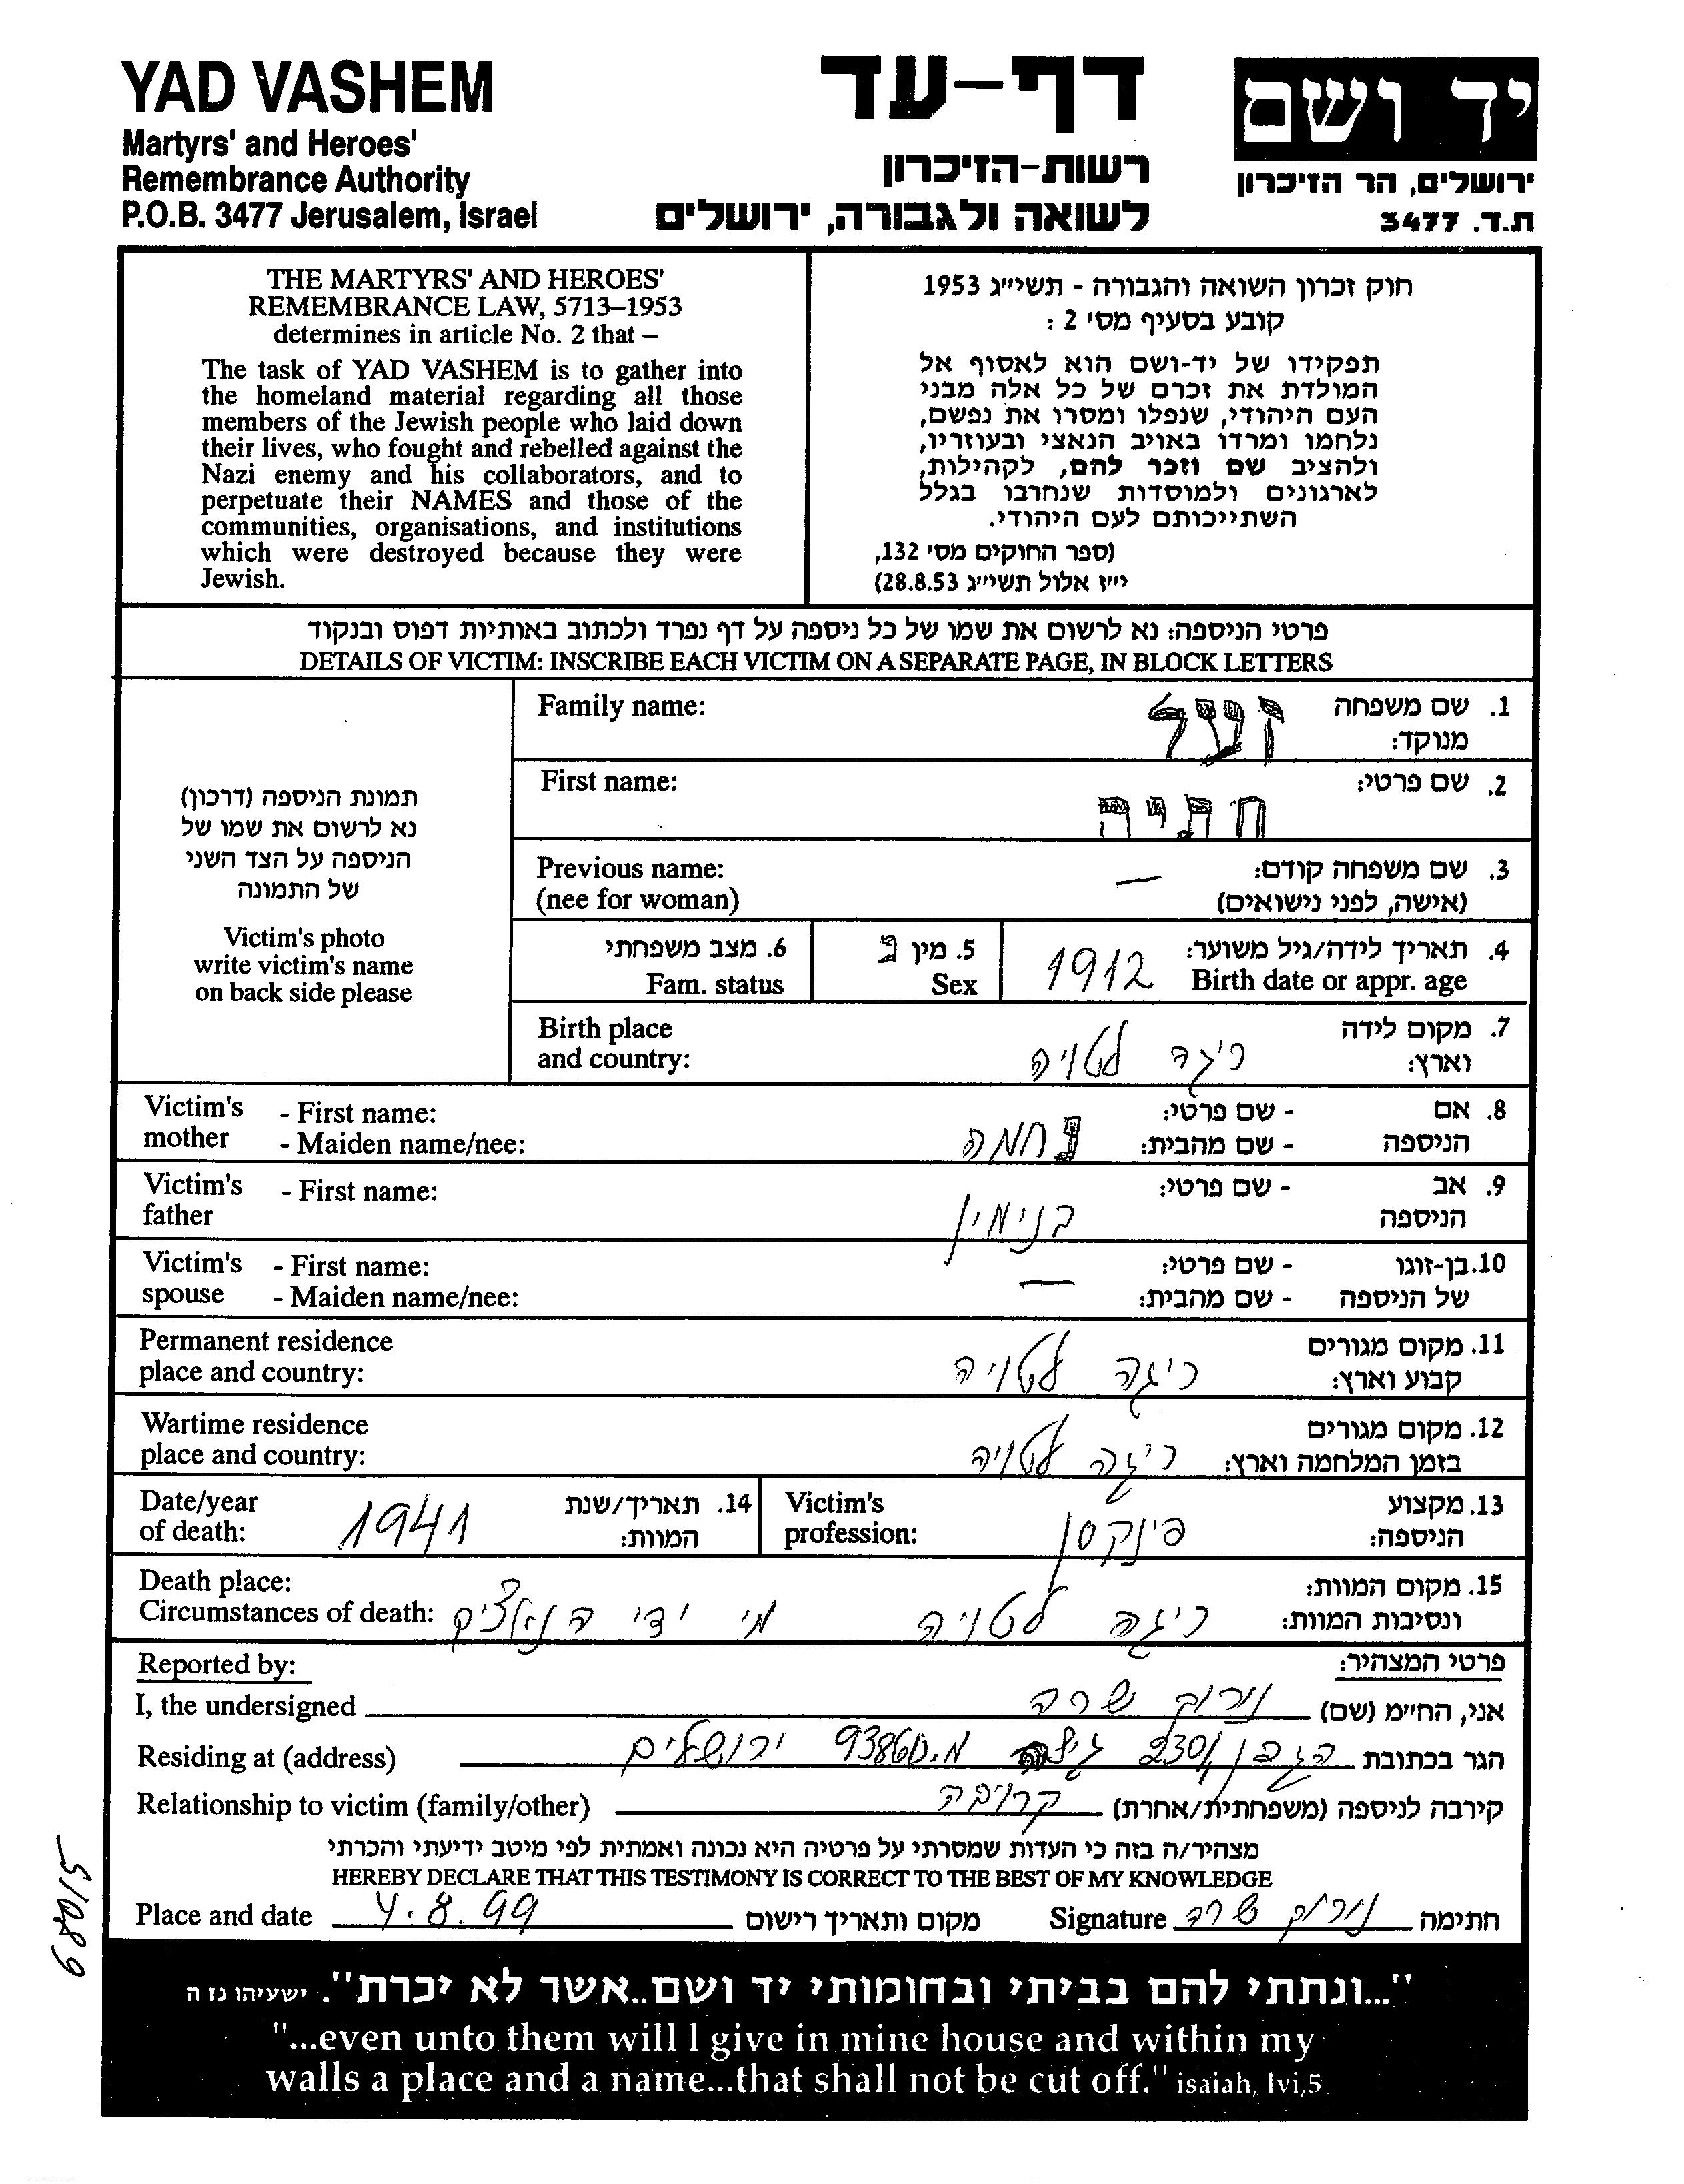 YAD VASHEM
Martyrs' and Heroes'
Remembrance Authority
P.O.B. 3477 Jerusalem, Israel
דף-עד
רשות-הזיכרון
לשואה ולגבורה, ירושלים
יד ושם
ירושלים, הר הזיכרון
ת.ד. 3477
THE MARTYRS' AND HEROES'
REMEMBRANCE LAW, 5713–1953
determines in article No. 2 that –
The task of YAD VASHEM is to gather into
the homeland material regarding all those
members of the Jewish people who laid down
their lives, who fought and rebelled against the
Nazi enemy and his collaborators, and to
perpetuate their NAMES and those of the
communities, organisations, and institutions
which were destroyed because they were
Jewish.
חוק זכרון השואה והגבורה - תשי״ג 1953
קובע בסעיף מס׳ 2 :
תפקידו של יד-ושם הוא לאסוף אל
המולדת את זכרם של כל אלה מבני
העם היהודי, שנפלו ומסרו את נפשם,
נלחמו ומרדו באויב הנאצי ובעוזריו,
ולהציב שם וזכר להם, לקהילות,
לארגונים ולמוסדות שנחרבו בגלל
השתייכותם לעם היהודי.
(ספר החוקים מס׳ 132,
י״ז אלול תשי״ג 28.8.53)
פרטי הניספה: נא לרשום את שמו של כל ניספה על דף נפרד ולכתוב באותיות דפוס ובנקוד
DETAILS OF VICTIM: INSCRIBE EACH VICTIM ON A SEPARATE PAGE, IN BLOCK LETTERS
תמונת הניספה (דרכון)
נא לרשום את שמו של
הניספה על הצד השני
של התמונה
Victim's photo
write victim's name
on back side please
1. שם משפחה
מנוקד:
Family name:
2. שם פרטי:
First name:
3. שם משפחה קודם: —
(אישה, לפני נישואים)
Previous name:
(nee for woman)
4. תאריך לידה/גיל משוער: 1912
Birth date or appr. age
5. מין נ
Sex
6. מצב משפחתי
Fam. status
7. מקום לידה
וארץ: ריגה לטויה
Birth place
and country:
8. אם - שם פרטי:
הניספה - שם מהבית: נחמה
Victim's - First name:
mother - Maiden name/nee:
9. אב - שם פרטי:
הניספה בנימין
Victim's - First name:
father
10. בן-זוגו - שם פרטי: —
של הניספה - שם מהבית:
Victim's - First name:
spouse - Maiden name/nee:
11. מקום מגורים
קבוע וארץ: ריגה לטויה
Permanent residence
place and country:
12. מקום מגורים
בזמן המלחמה וארץ: ריגה לטויה
Wartime residence
place and country:
13. מקצוע
הניספה:
Victim's
profession:
14. תאריך/שנת
המוות: 1941
Date/year
of death:
15. מקום המוות:
ונסיבות המוות: ריגה לטויה מי ידי הנאצים
Death place:
Circumstances of death:
פרטי המצהיר:
Reported by:
אני, החי״מ (שם) נורוק שרה
I, the undersigned
הגר בכתובת הגפן 230 גילה מ.ס 93860 ירושלים
Residing at (address)
קירבה לניספה (משפחתית/אחרת) קרובה
Relationship to victim (family/other)
מצהיר/ה בזה כי העדות שמסרתי על פרטיה היא נכונה ואמתית לפי מיטב ידיעתי והכרתי
HEREBY DECLARE THAT THIS TESTIMONY IS CORRECT TO THE BEST OF MY KNOWLEDGE
Place and date 4.8.99 מקום ותאריך רישום Signature נורוק שרה חתימה
51089
"...ונתתי להם בביתי ובחומותי יד ושם..אשר לא יכרת". ישעיהו נז ה
"...even unto them will I give in mine house and within my
walls a place and a name...that shall not be cut off." isaiah, lvi,5